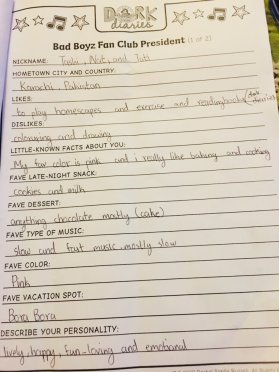 DORK
diaries
Bad Boyz Fan Club President (1 or 2)
NICKNAME: Not, and Tati
HOMETOWN CITY AND COUNTRY:
Karachi, Pakistan
LIKES:
to play homescapes and exercise and reading books
DISLIKES:
colouring and drawing
LITTLE-KNOWN FACTS ABOUT YOU:
My fav color is pink and i really like baking and cooking
FAVE LATE-NIGHT SNACK:
cookies and milk
FAVE DESSERT:
anything chocolate mostly (cake)
FAVE TYPE OF MUSIC:
slow and fast music, mostly slow
FAVE COLOR:
Pink
FAVE VACATION SPOT:
Bora Bora
DESCRIBE YOUR PERSONALITY:
lively, happy, fun-loving and emotional